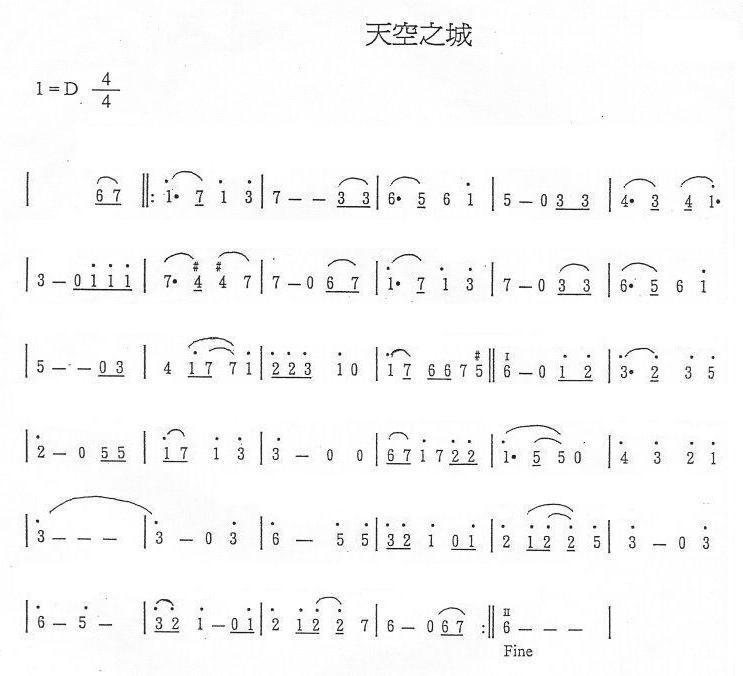 天空之城
1=D 4/4
| 6 7 ‖: 1̇· 7 1̇ 3̇ | 7 – – 3 3 | 6· 5 6 1̇ | 5 – 0 3 3 | 4· 3 4 1̇·
| 3 – 0 1̇ 1̇ 1̇ | 7· #4 #4 7 | 7 – 0 6 7 | 1̇· 7 1̇ 3̇ | 7 – 0 3 3 | 6· 5 6 1̇
| 5 – – 0 3 | 4 1̇ 7 7 1̇ | 2̇ 2̇ 3̇ 1̇ 0 | 1̇ 7 6 6 7 #5 ‖ I 6 – 0 1̇ 2̇ | 3̇· 2̇ 3̇ 5̇
| 2̇ – 0 5 5 | 1̇ 7 1̇ 3̇ | 3̇ – 0 0 | 6 7 1̇ 7 2̇ 2̇ | 1̇· 5 5 0 | 4̇ 3̇ 2̇ 1̇
| 3̇ – – – | 3̇ – 0 3̇ | 6̇ – 5̇ 5̇ | 3̇ 2̇ 1̇ 0 1̇ | 2̇ 1̇ 2̇ 2̇ 5̇ | 3̇ – 0 3̇
| 6̇ – 5̇ – | 3̇ 2̇ 1̇ – 0 1̇ | 2̇ 1̇ 2̇ 2̇ 7 | 6 – 0 6 7 :‖ II 6 – – – |
Fine